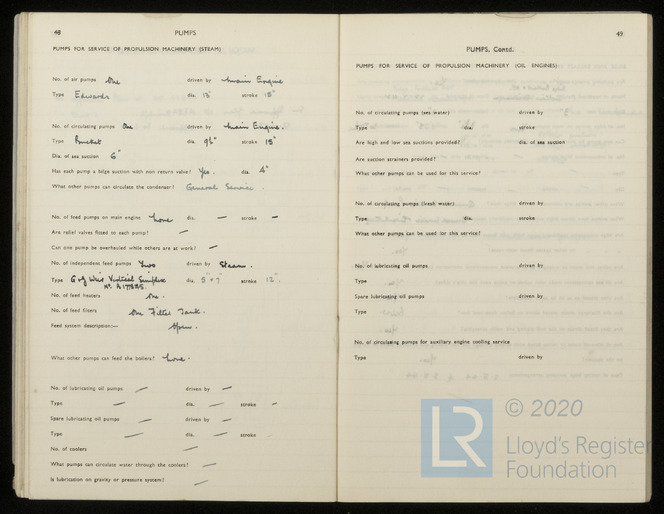 48
PUMPS
PUMPS FOR SERVICE OF PROPULSION MACHINERY (STEAM)
No. of air pumps One driven by Main Engine
Type Edwards dia. 13" stroke 15"
No. of circulating pumps One driven by Main Engine.
Type Bucket dia. 9½" stroke 15"
Dia. of sea suction 6"
Has each pump a bilge suction with non return valve? Yes. dia. 4"
What other pumps can circulate the condenser? General Service.
No. of feed pumps on main engine None dia. — stroke —
Are relief valves fitted to each pump? —
Can one pump be overhauled while others are at work? —
No. of independent feed pumps Two driven by Steam.
Type G & J Weir Vertical Simplex dia. 5" × 7" stroke 12"
No. of feed heaters One.
No. of feed filters One Filter Tank.
Feed system description:— Open.
What other pumps can feed the boilers? None.
No. of lubricating oil pumps — driven by —
Type — dia. — stroke —
Spare lubricating oil pumps — driven by —
Type — dia. — stroke
No. of coolers —
What pumps can circulate water through the coolers? —
Is lubrication on gravity or pressure system? —
49
PUMPS, Contd.
PUMPS FOR SERVICE OF PROPULSION MACHINERY (OIL ENGINES)
No. of circulating pumps (sea water) driven by
Type dia. stroke
Are high and low sea suctions provided? dia. of sea suction
Are suction strainers provided?
What other pumps can be used for this service?
No. of circulating pumps (fresh water) driven by
Type dia. stroke
What other pumps can be used for this service?
No. of lubricating oil pumps driven by
Type
Spare lubricating oil pumps driven by
Type
No. of circulating pumps for auxiliary engine cooling service
Type driven by
LR
© 2020
Lloyd's Register
Foundation